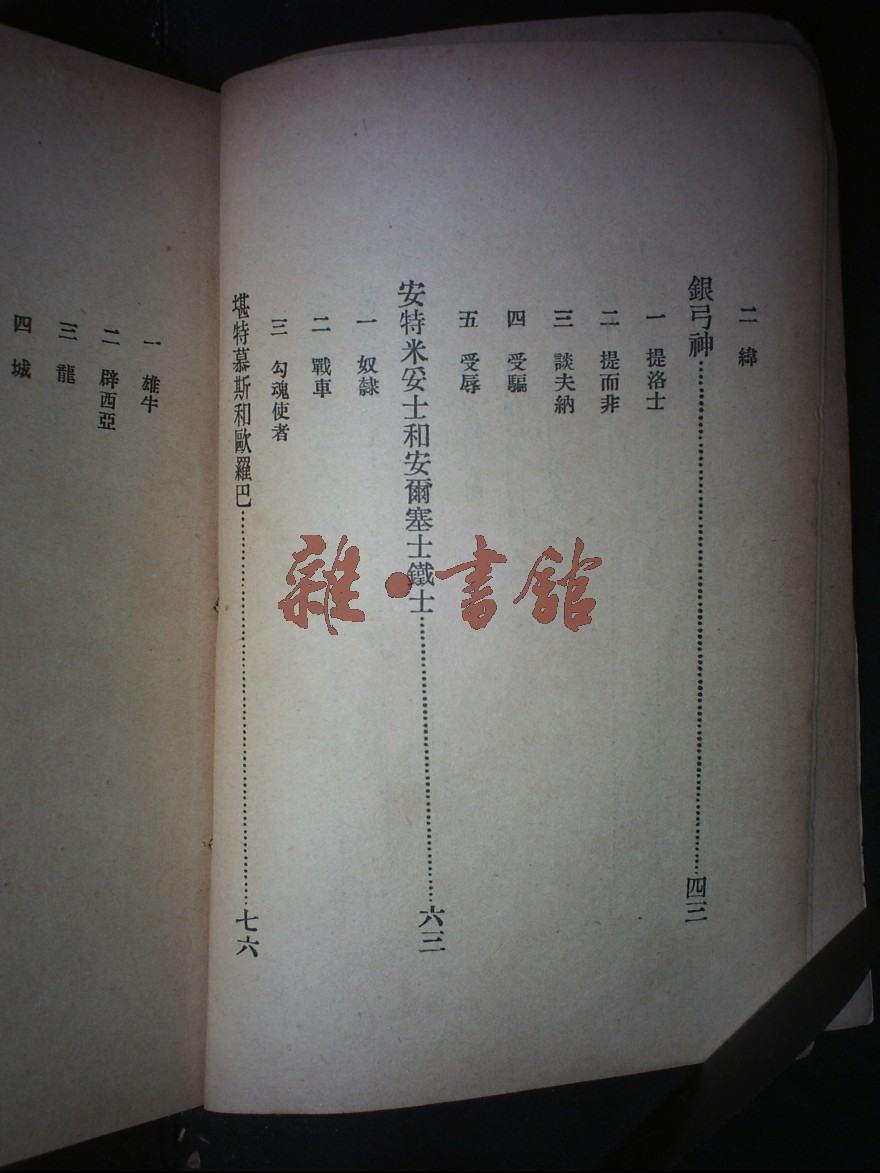 二 緯
銀弓神……四三
一 提洛士
二 提而非
三 談夫納
四 受騙
五 受辱
安特米妥士和安爾塞士鐵士……六三
一 奴隸
二 戰車
三 勾魂使者
堪特慕斯和歐羅巴……七六
一 雄牛
二 辟西亞
三 龍
四 城
雜·書館